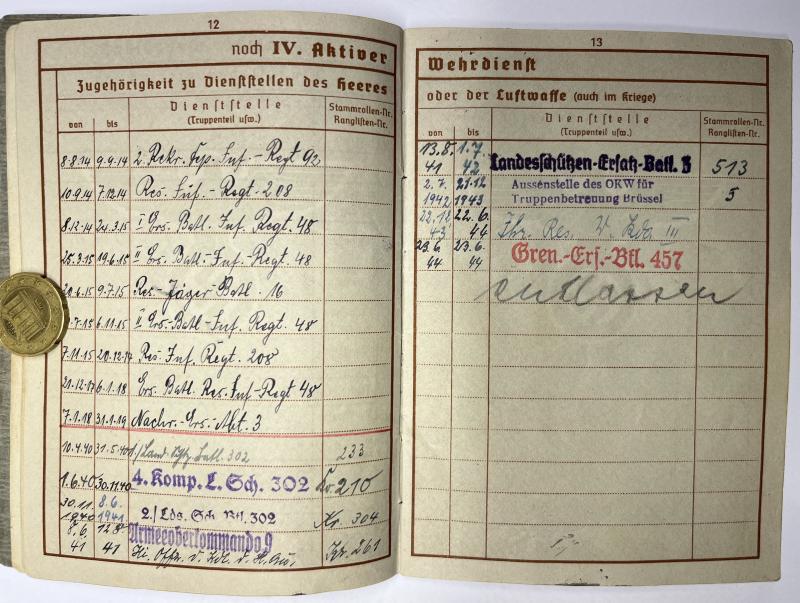 12
noch IV. Aktiver
Zugehörigkeit zu Dienststellen des Heeres
von bis Dienststelle (Truppenteil usw.) Stammrollen-Nr. Ranglisten-Nr.
8.8.14 9.9.14 2. Rekr. Dep. Inf.-Regt 92
10.9.14 7.12.14 Res. Inf.-Regt. 208
8.12.14 24.3.15 I Ers. Batl. Inf. Regt. 48
25.3.15 19.6.15 II Ers. Batl-Inf-Regt. 48
20.6.15 9.7.15 Res-Jäger-Batl. 16
7.15 6.11.15 II Ers-Batl-Inf. Regt. 48
7.11.15 20.12.17 Res Inf. Regt. 208
21.12.17 6.1.18 Ers. Batl. Res. Inf-Regt 48
7.1.18 31.1.19 Nachr.-Ers-Abt. 3
10.4.40 31.5.40 1./Land. Schtz. Batl. 302 233
1.6.40 30.11.40 4. Komp. L. Sch. 302 Kr. 210
30.11. 1940 8.6. 1941 2./ Lds. Sch. Btl. 302 Kr. 304
8.6. 41 12.8. 41 Armeeoberkommando 9
Kr. 261
13
Wehrdienst
oder der Luftwaffe (auch im Kriege)
von bis Dienststelle (Truppenteil usw.) Stammrollen-Nr. Ranglisten-Nr.
13.8. 41 1.7. 42 Landesschützen-Ersatz-Batl. 3 513
2.7. 1942 21.12 1943 Aussenstelle des OKW für Truppenbetreuung Brüssel 5
22.12. 43 22.6. 44 Fhr. Res. W. Kdo III
23.6. 44 23.6. 44 Gren.-Ers.-Btl. 457
entlassen